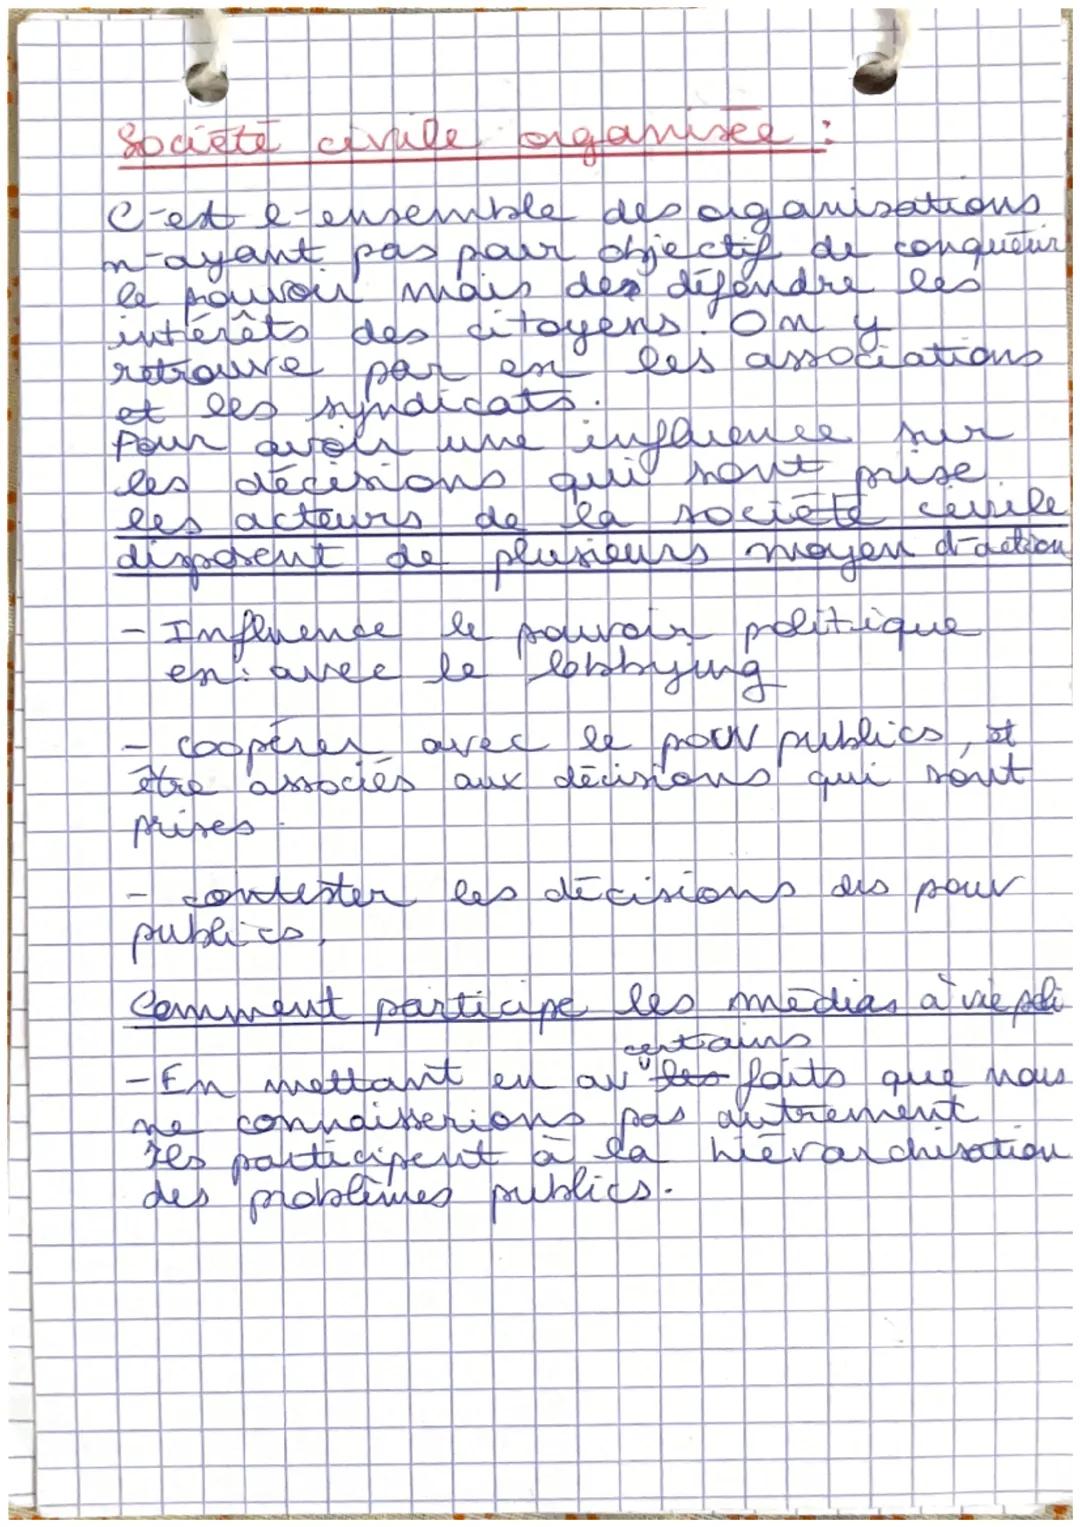 Société civile organisée :
C'est l'ensemble des organisations
n'ayant pas pour objectif de conquérir
le pouvoir mais des défendre les
intérêts des citoyens. On y
retrouve par ex les associations
et les syndicats.
Pour avoir une influence sur
les décisions qui sont prise
les acteurs de la société civile
disposent de plusieurs moyen d'action
- Influence le pouvoir politique
ex: avec le lobbying
- coopérer avec le pouv publics, et
être associés aux décisions qui sont
prises.
- contester les décisions des pouv
publics,
Comment participe les médias à vie poli
certains
- En mettant en av les faits que nous
ne connaisserions pas autrement
Ils participent à la hiérarchisation
des problèmes publics.